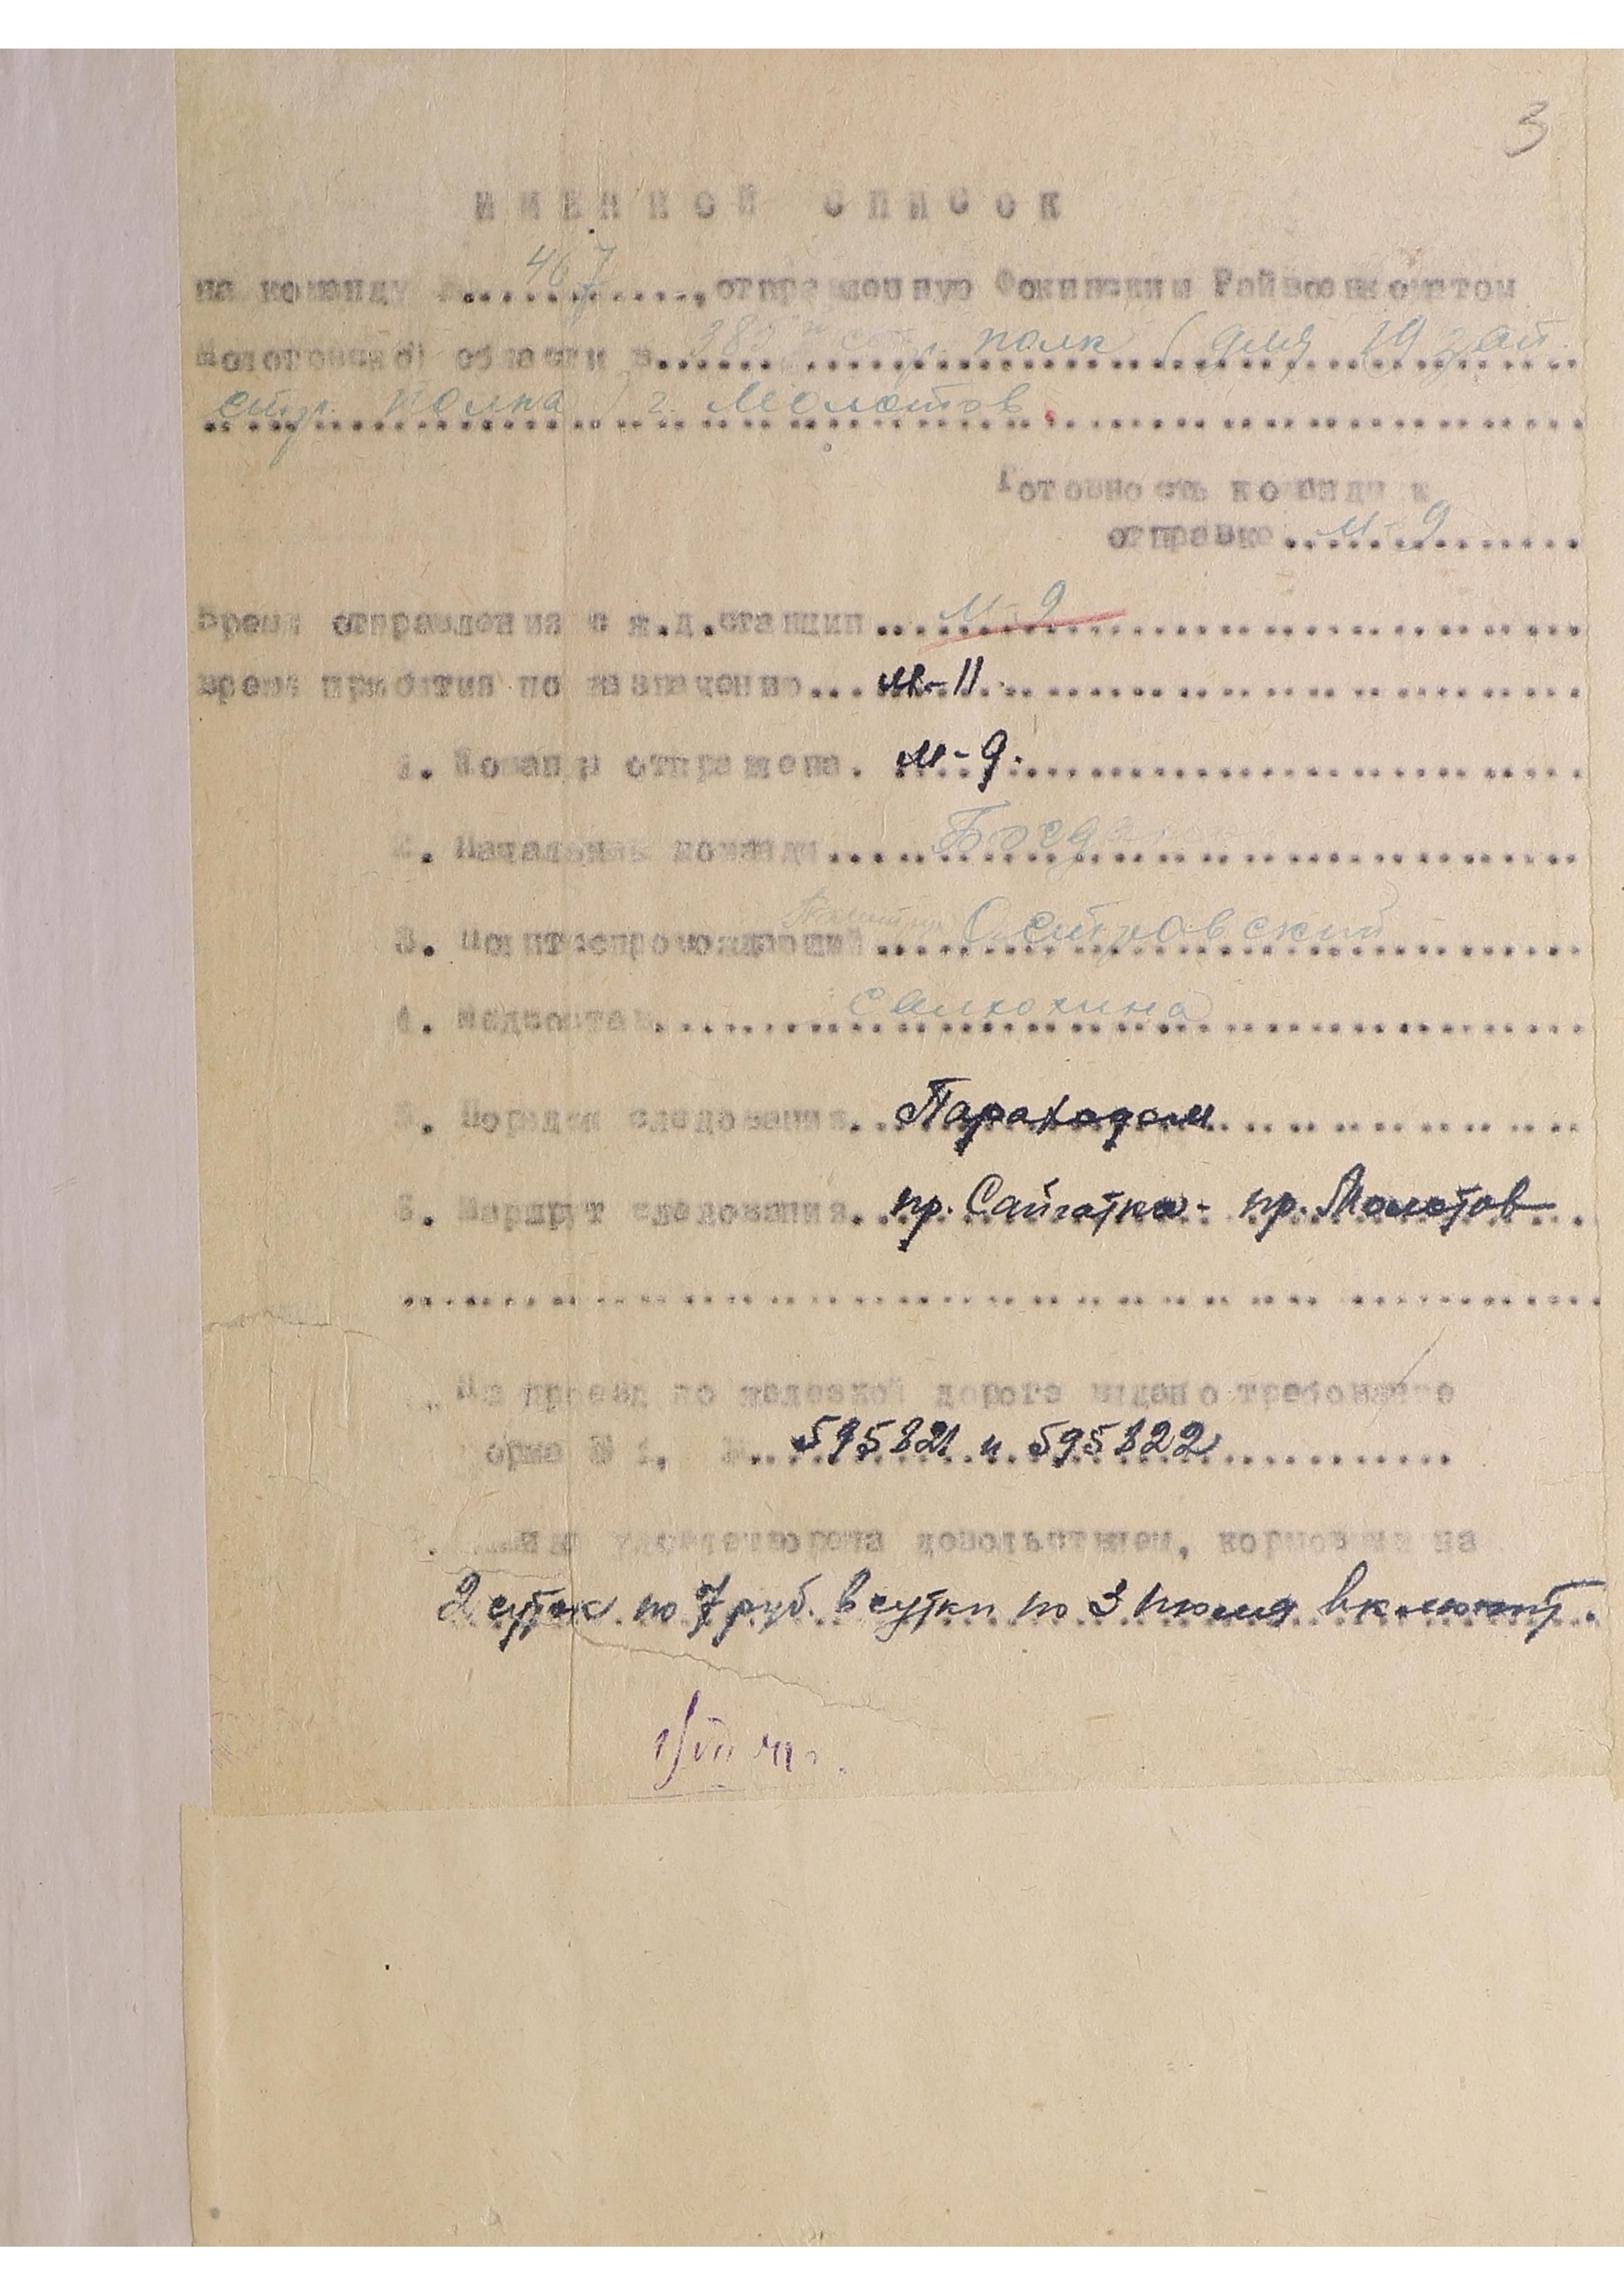 3
ИМЕННОЙ СПИСОК
на команду №.... 467 ....,отправленную Фокинским Райвоенкоматом
Молотовской области в.... стр. полк (для 19 зап.
стр. полка) г. Молотов
Готовность команды к
отправке.. М-9
Время отправления с ж.д.станции... М-9
Время прибытия по назначению... М-11.
1. Команда отправлена. М-9.
2. Начальник команды....
3. Политсопровождающий... Островский
4. Медсостав.........
5. Порядок следования. Параходом
6. Маршрут следования. пр. Сайгатка - пр. Молотов
На проезд по железной дороге выдано требование
форме № 1, №.. 595821 и 595822
удовлетворена довольствием, кормовыми на
2 суток по 7 руб. в сутки по 3 июля включит.
1/VII 41 г.